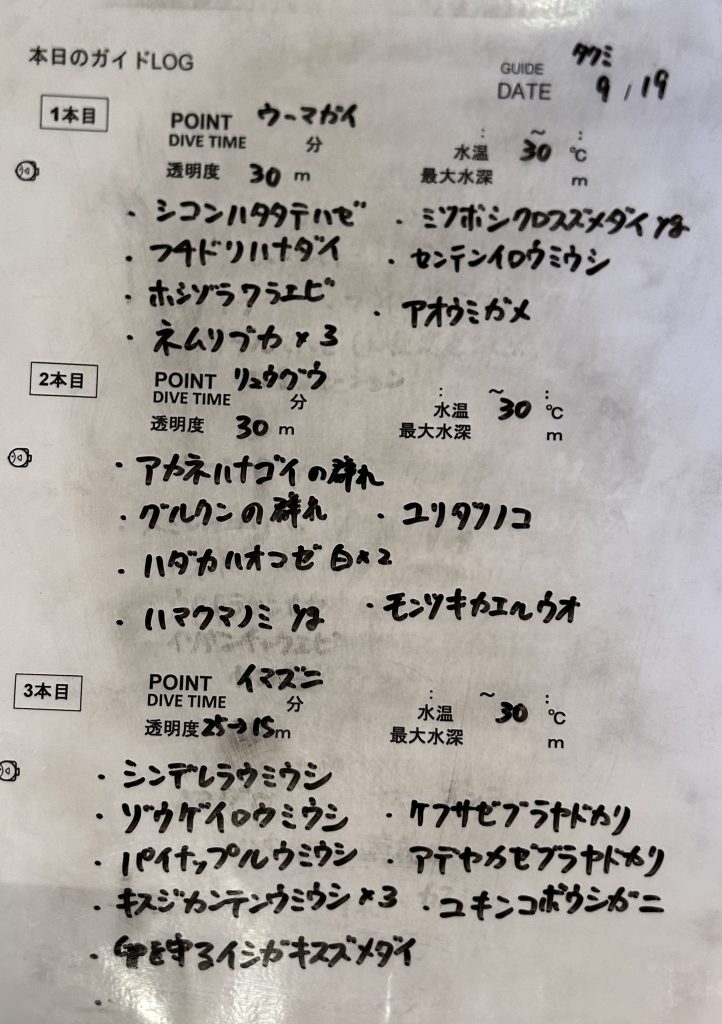 本日のガイドLOG
GUIDE タクミ
DATE 9/19
1本目
POINT ウーマガイ
DIVE TIME 分
: ～ :
水温 30 ℃
透明度 30 m
最大水深 m
・シコンハタタテハゼ
・ミツボシクロスズメダイ yg
・フチドリハナダイ
・センテンイロウミウシ
・ホシゾラワラエビ
・アオウミガメ
・ネムリブカ×3
2本目
POINT リュウグウ
DIVE TIME 分
: ～ :
水温 30 ℃
透明度 30 m
最大水深 m
・アカネハナゴイの群れ
・グルクンの群れ
・ユリタツノコ
・ハダカハオコゼ 白×2
・ハマクマノミ yg
・モンツキカエルウオ
3本目
POINT イマズニ
DIVE TIME 分
: ～ :
水温 30 ℃
透明度 25→15m
最大水深 m
・シンデレラウミウシ
・ゾウゲイロウミウシ
・ケフサゼブラヤドカリ
・パイナップルウミウシ
・アデヤカゼブラヤドカリ
・キスジカンテンウミウシ×3
・ユキンコボウシガニ
・卵を守るイシガキスズメダイ
・